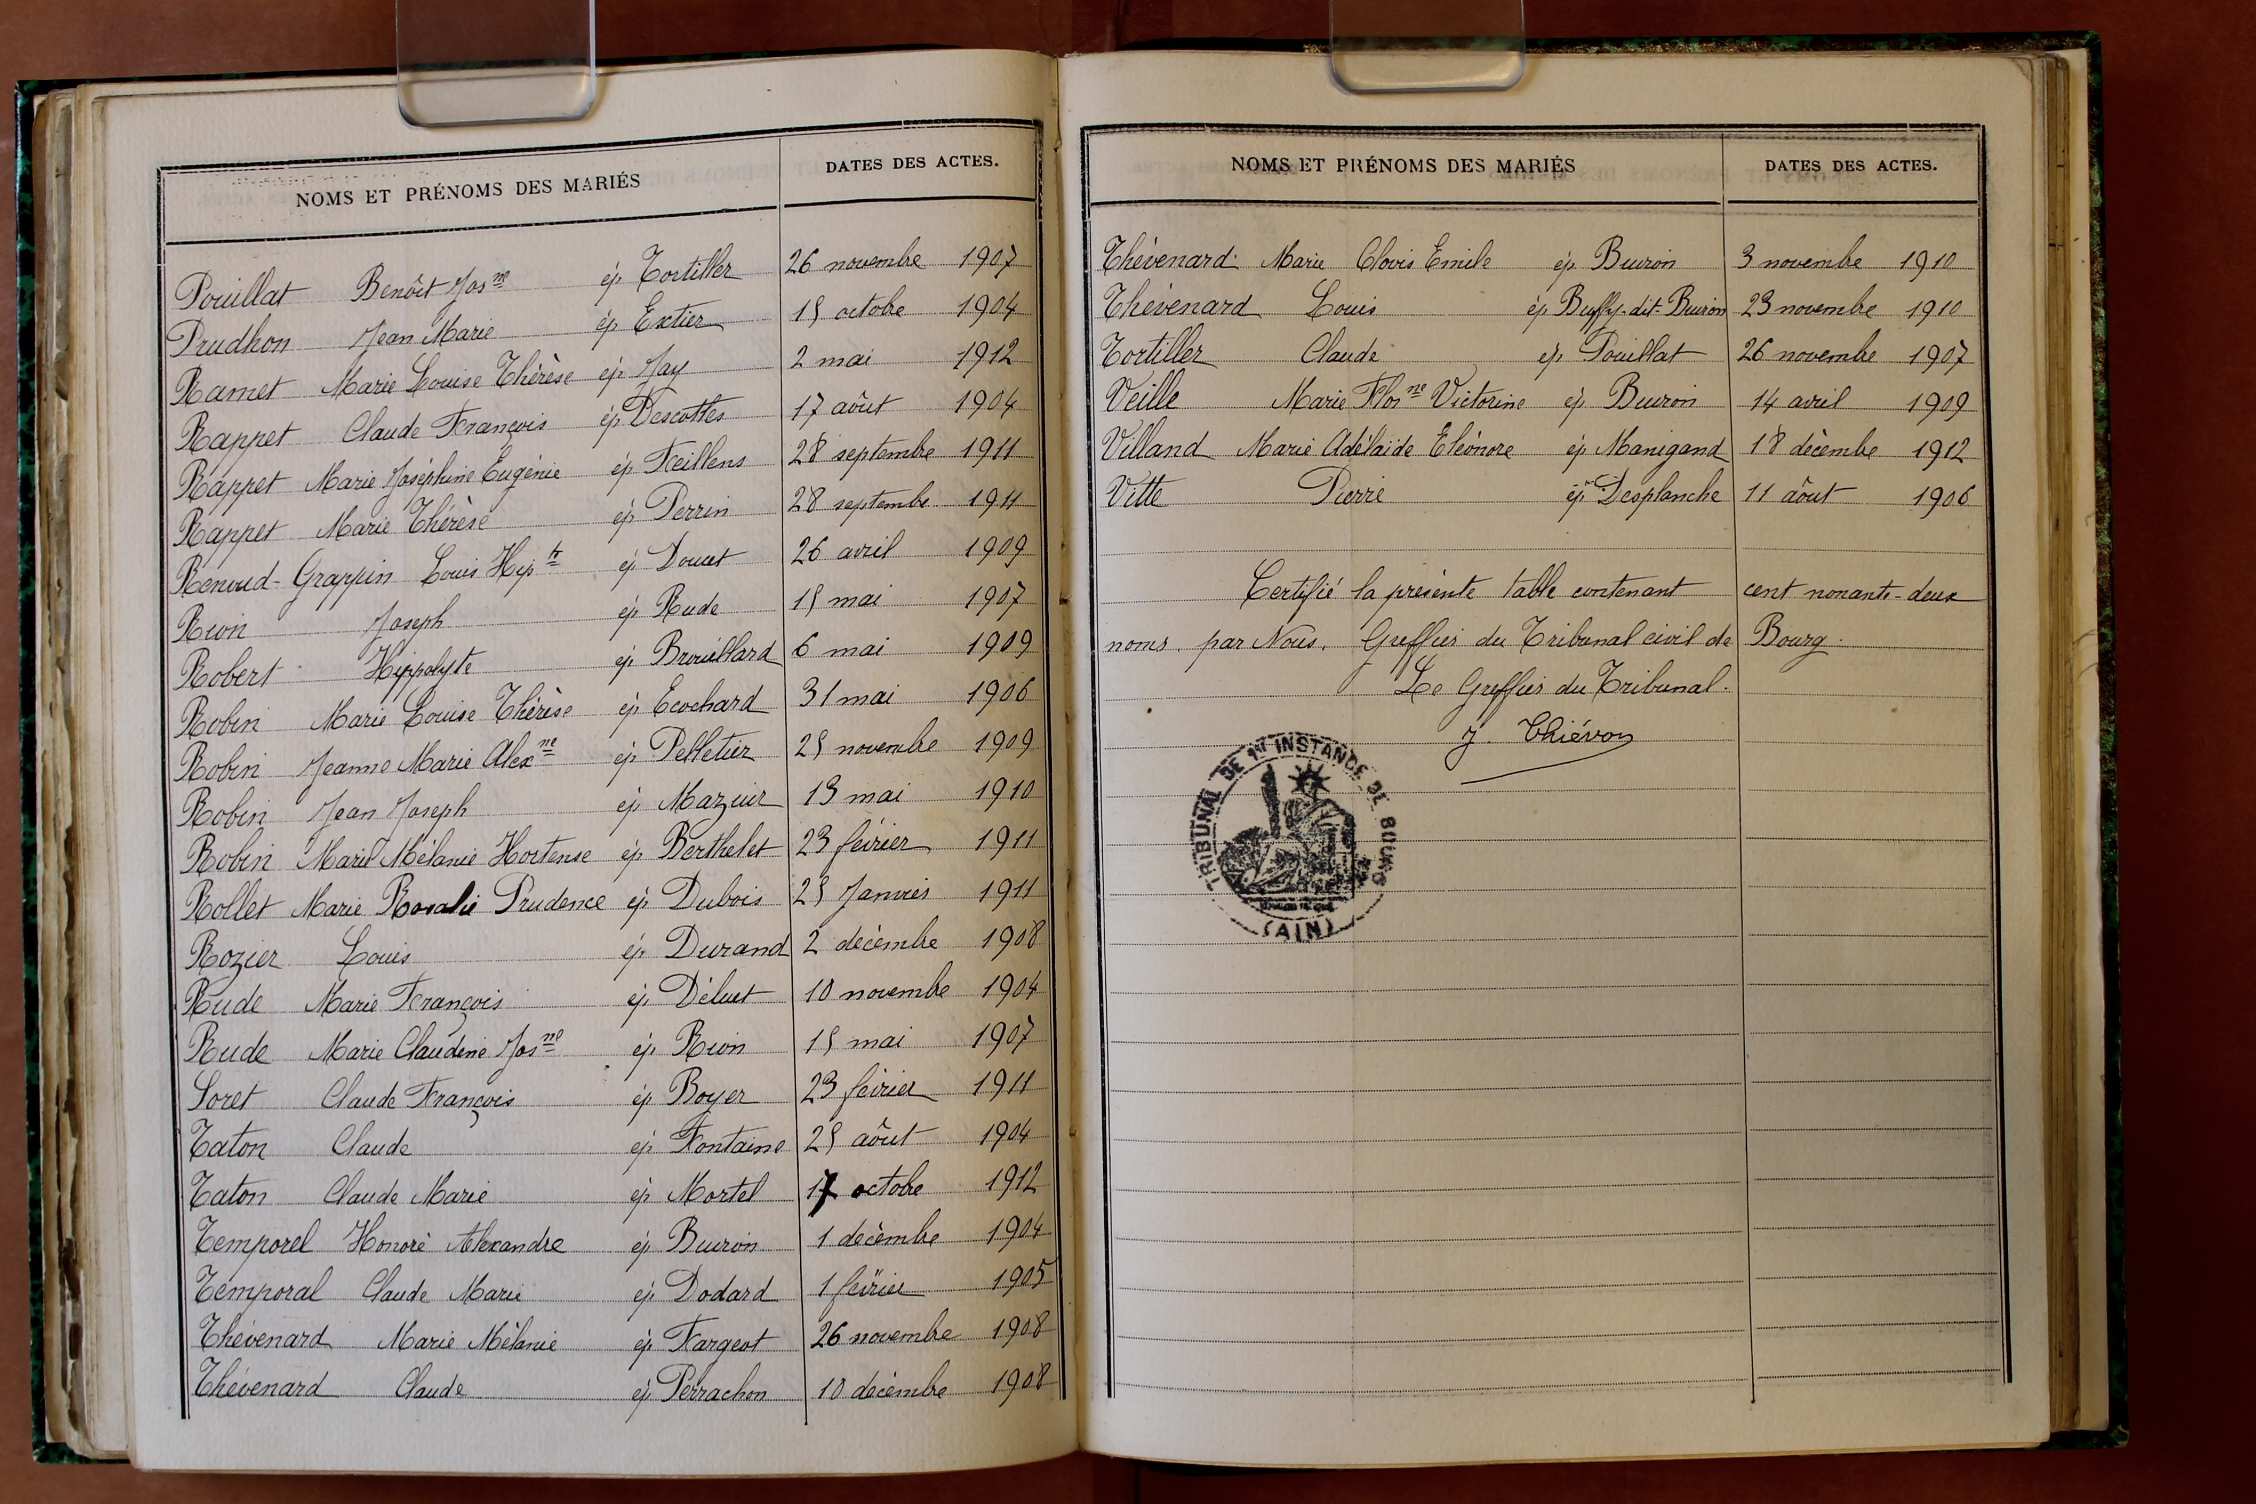 NOMS ET PRÉNOMS DES MARIÉS DATES DES ACTES.
Pouillat Benôit Jos^ne ép Tortiller 26 novembre 1907
Prudhon Jean Marie ép Extier 15 octobre 1904
Ramet Marie Louise Thérèse ép Jay 2 mai 1912
Rappet Claude François ép Descottes 17 août 1904
Rappet Marie Joséphine Eugénie ép Feillens 28 septembre 1911
Rappet Marie Thérèse ép Perrin 28 septembre 1911
Renoud-Grappin Louis Hip^te ép Doucet 26 avril 1909
Rion Joseph ép Rude 15 mai 1907
Robert Hippolyte ép Brouillard 6 mai 1909
Robin Marie Louise Thérèse ép Ecochard 31 mai 1906
Robin Jeanne Marie Alex^ne ép Pelletier 25 novembre 1909
Robin Jean Joseph ép Mazuir 13 mai 1910
Robin Marie Mélanie Hortense ép Berthelet 23 février 1911
Rollet Marie Rosalie Prudence ép Dubois 25 Janvier 1911
Rozier Louis ép Durand 2 décembre 1908
Rude Marie François ép Déluet 10 novembre 1904
Rude Marie Claudine Jos^ne ép Rion 15 mai 1907
Soret Claude François ép Boyer 23 février 1911
Taton Claude ép Fontaine 25 août 1904
Taton Claude Marie ép Mortel 17 octobre 1912
Temporel Honoré Alexandre ép Buiron 1 décembre 1904
Temporal Claude Marie ép Dodard 1 février 1905
Thévenard Marie Mélanie ép Fargeot 26 novembre 1908
Thévenard Claude ép Perrachon 10 décembre 1908
NOMS ET PRÉNOMS DES MARIÉS DATES DES ACTES.
Thévenard Marie Clovis Emile ép Buiron 3 novembre 1910
Thévenard Louis ép Buffy-dit-Buiron 23 novembre 1910
Tortiller Claude ép Pouillat 26 novembre 1907
Veille Marie Flor^ne Victorine ép Buiron 14 avril 1909
Villand Marie Adélaïde Eléonore ép Manigand 18 décembre 1912
Vitte Pierre ép Desplanche 11 août 1906
Certifié la présente table contenant cent nonante-deux
noms, par Nous, Greffier du Tribunal civil de Bourg.
Le Greffier du Tribunal.
J. Thiévon
TRIBUNAL DE 1re INSTANCE DE BOURG
(AIN)